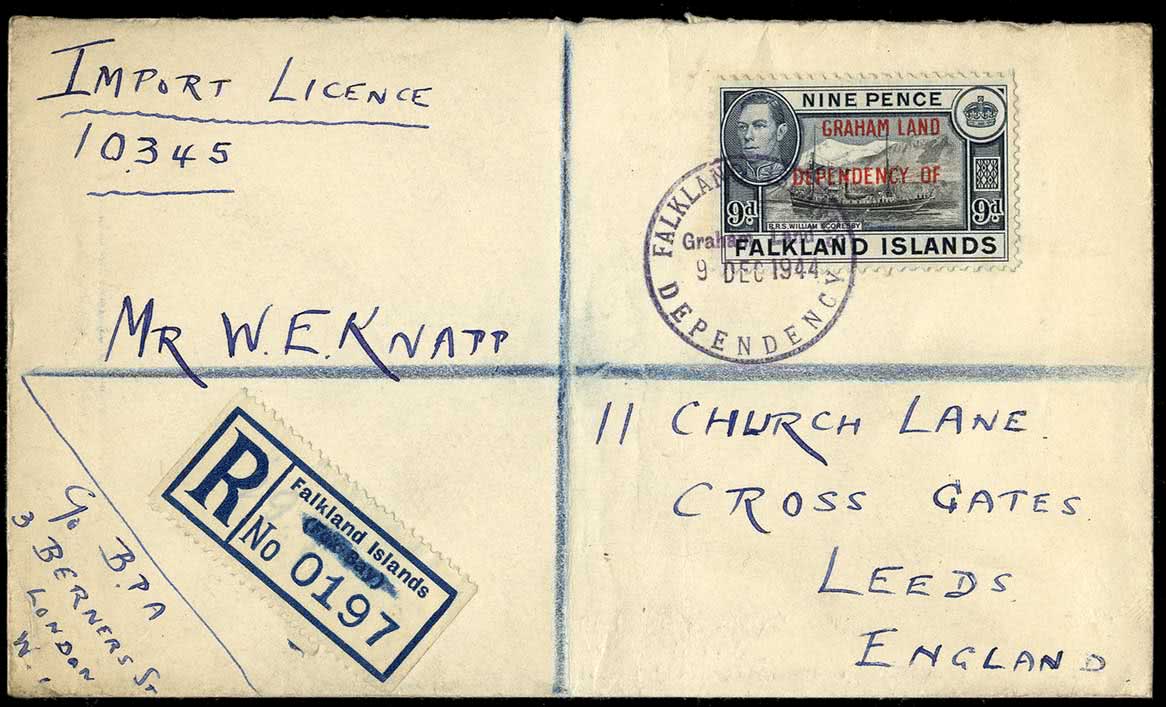 IMPORT LICENCE
10345
NINE PENCE
GRAHAM LAND
DEPENDENCY OF
9d 9d
R.R.S. WILLIAM SCORESBY
FALKLAND ISLANDS
FALKLAND
Graham Land
9 DEC 1944
DEPENDENCY
MR W.E. KNAPP
11 CHURCH LANE
CROSS GATES
LEEDS
ENGLAND
R
Falkland Islands
No 0197
C/o B.P.A
3 BERNERS ST
LONDON
W.1